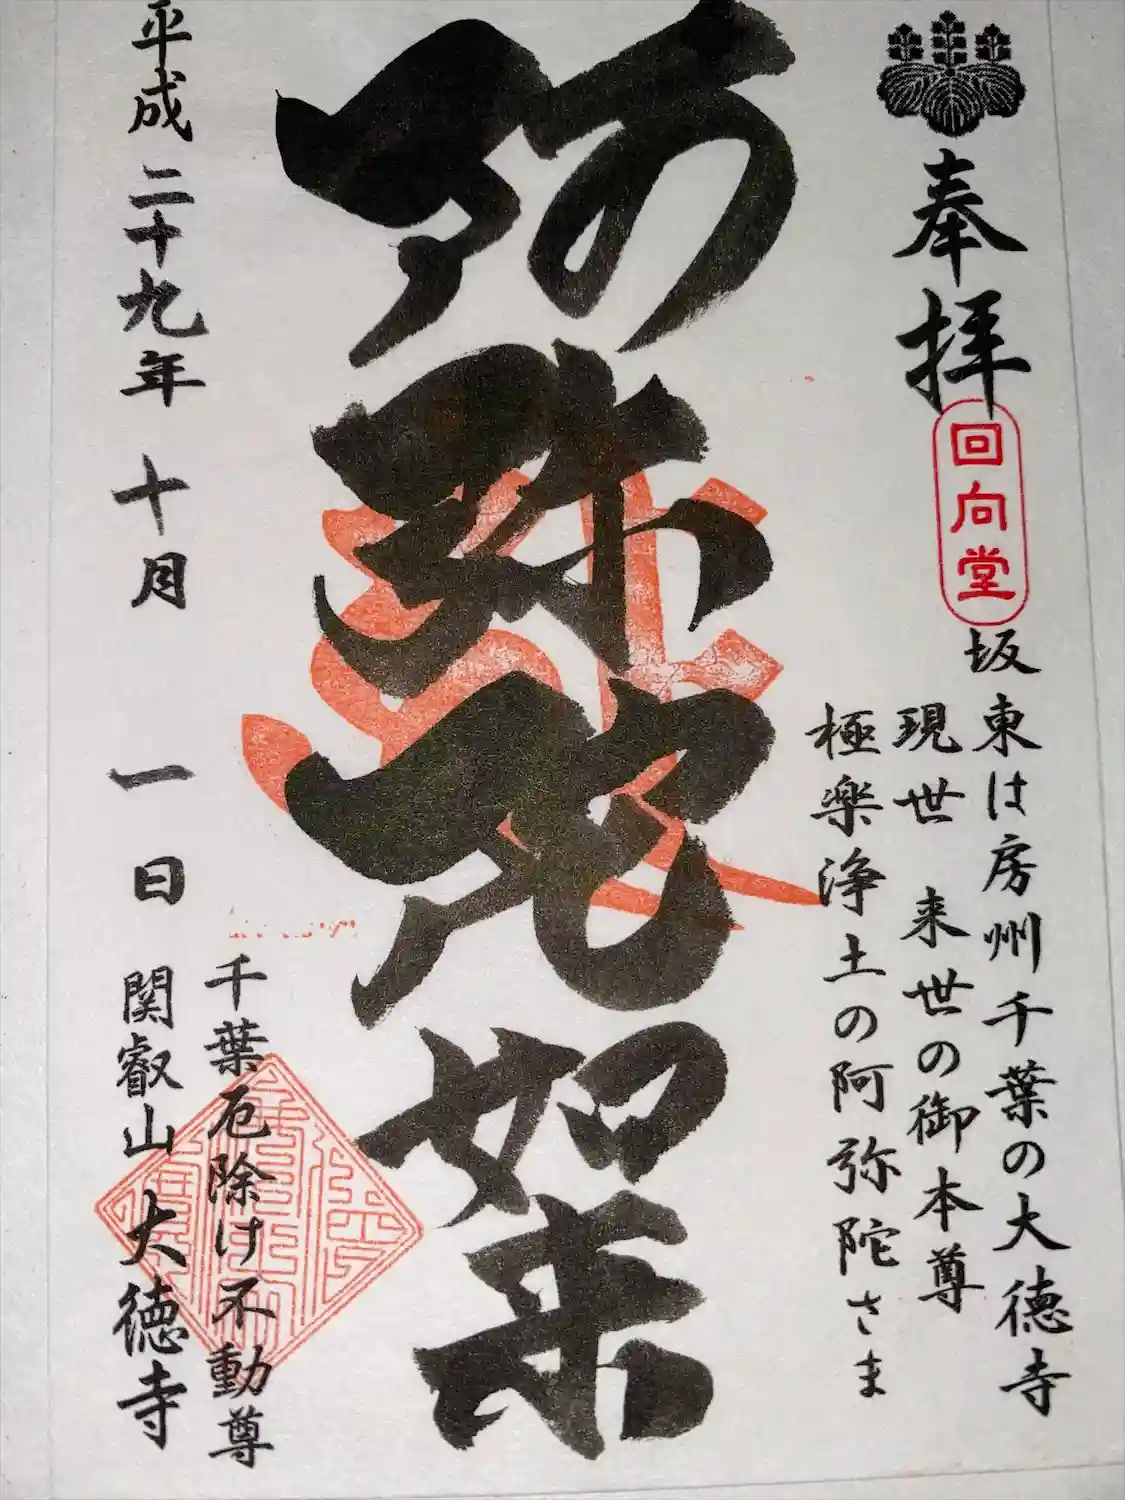 奉拝
回向堂
坂東は房州千葉の大徳寺
現世 来世の御本尊
極楽浄土の阿弥陀さま
阿弥陀如来
千葉厄除け不動尊
平成二十九年 十月 一日
関叡山大徳寺